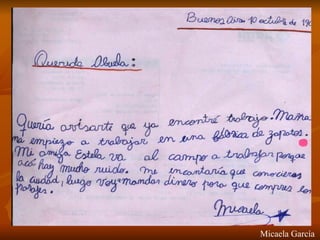 Buenos Aires 10 octubre de 190
Querida Abuela:
Quería avisarte que ya encontré trabajo. Maña
na empiezo a trabajar en una fábrica de zapatos.
Mi amiga Estela va al campo a trabajar porque
acó hay mucho ruido. me encantaría que conocieras
la ciudad, luego voy a mandar dinero para que compres los
pasajes.
Micaela
Micaela García